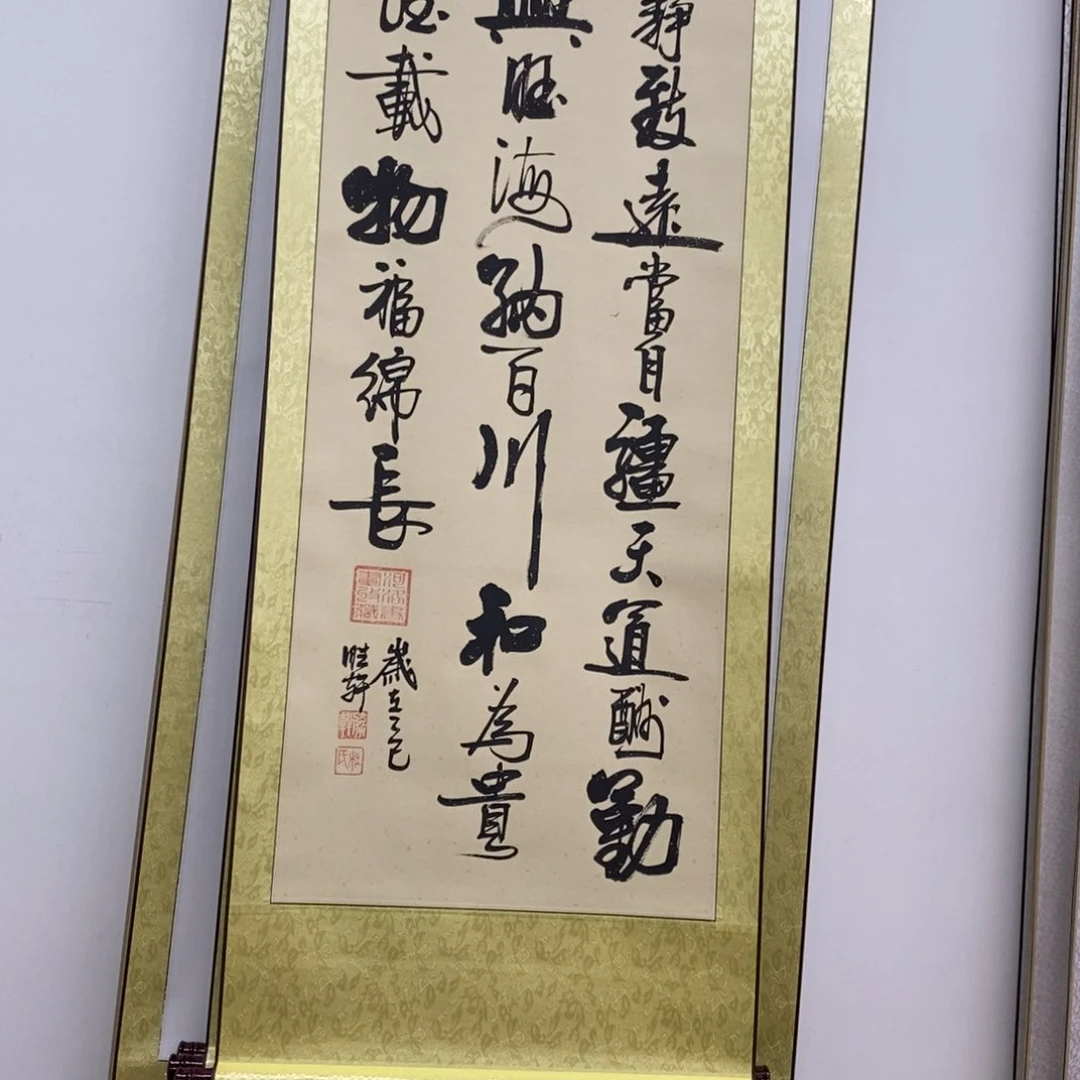 靜致遠當自疆天道酬勤
興旺海納百川和為貴
德載物福綿長
歲在乙巳